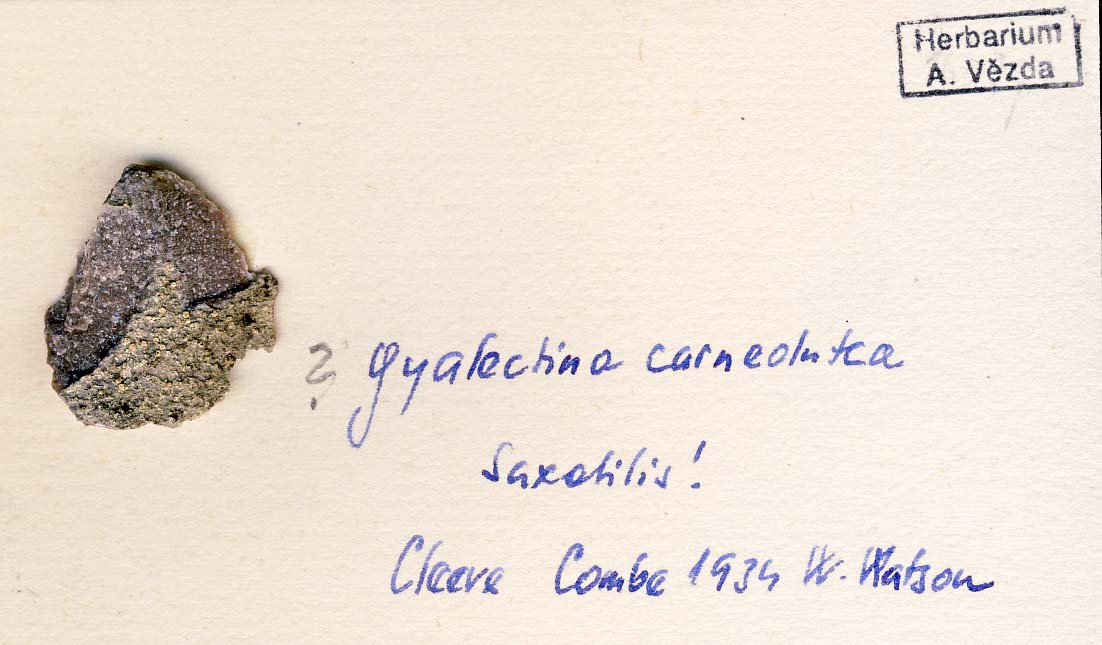 Herbarium
A. Vězda
? Gyalectina carneolutea
Saxatilis!
Cleeve Combe 1934 W. Watson